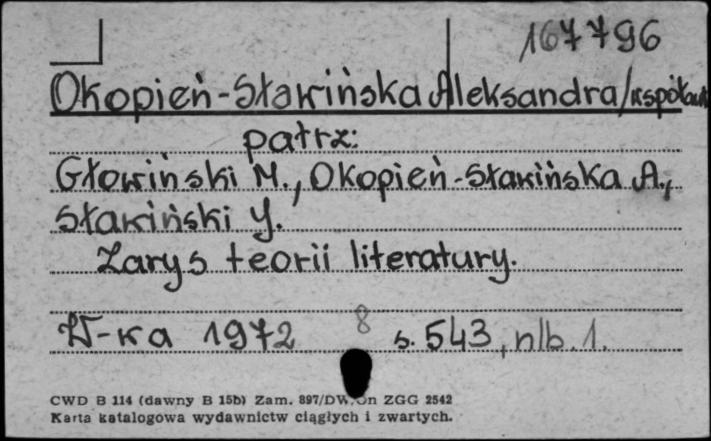 167796
Okopień-Sławińska Aleksandra/współaut
patrz:
Głowiński M., Okopień-Sławińska A.,
Sławiński J.
Zarys teorii literatury.
W-wa 1972 8 s. 543, nlb. 1.
CWD B 114 (dawny B 15b) Zam. 897/DW. On ZGG 2542
Karta katalogowa wydawnictw ciągłych i zwartych.